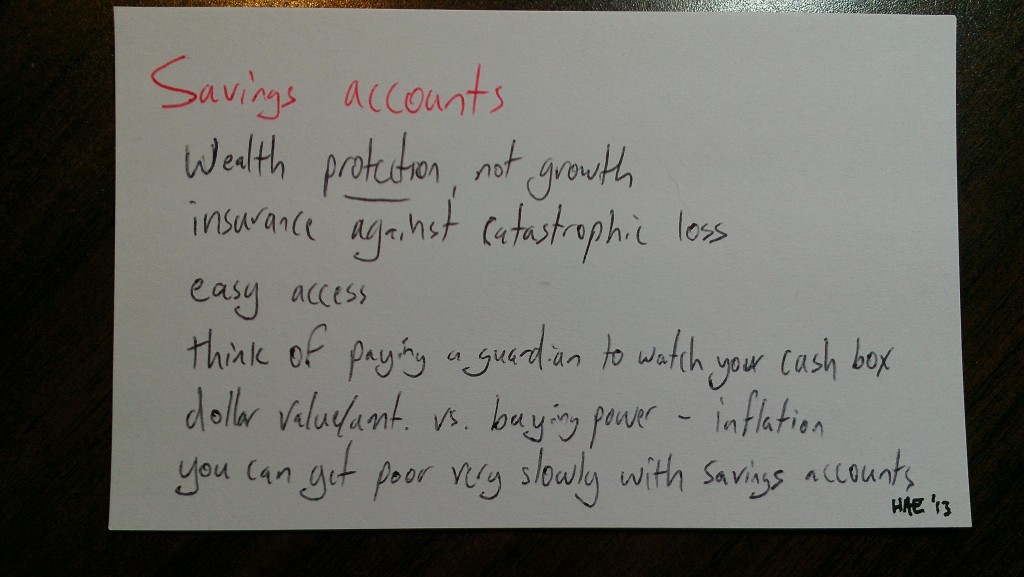 Savings accounts
Wealth protection, not growth
insurance against catastrophic loss
easy access
think of paying a guardian to watch your cash box
dollar value/amt. vs. buying power - inflation
you can get poor very slowly with savings accounts
HAE '13